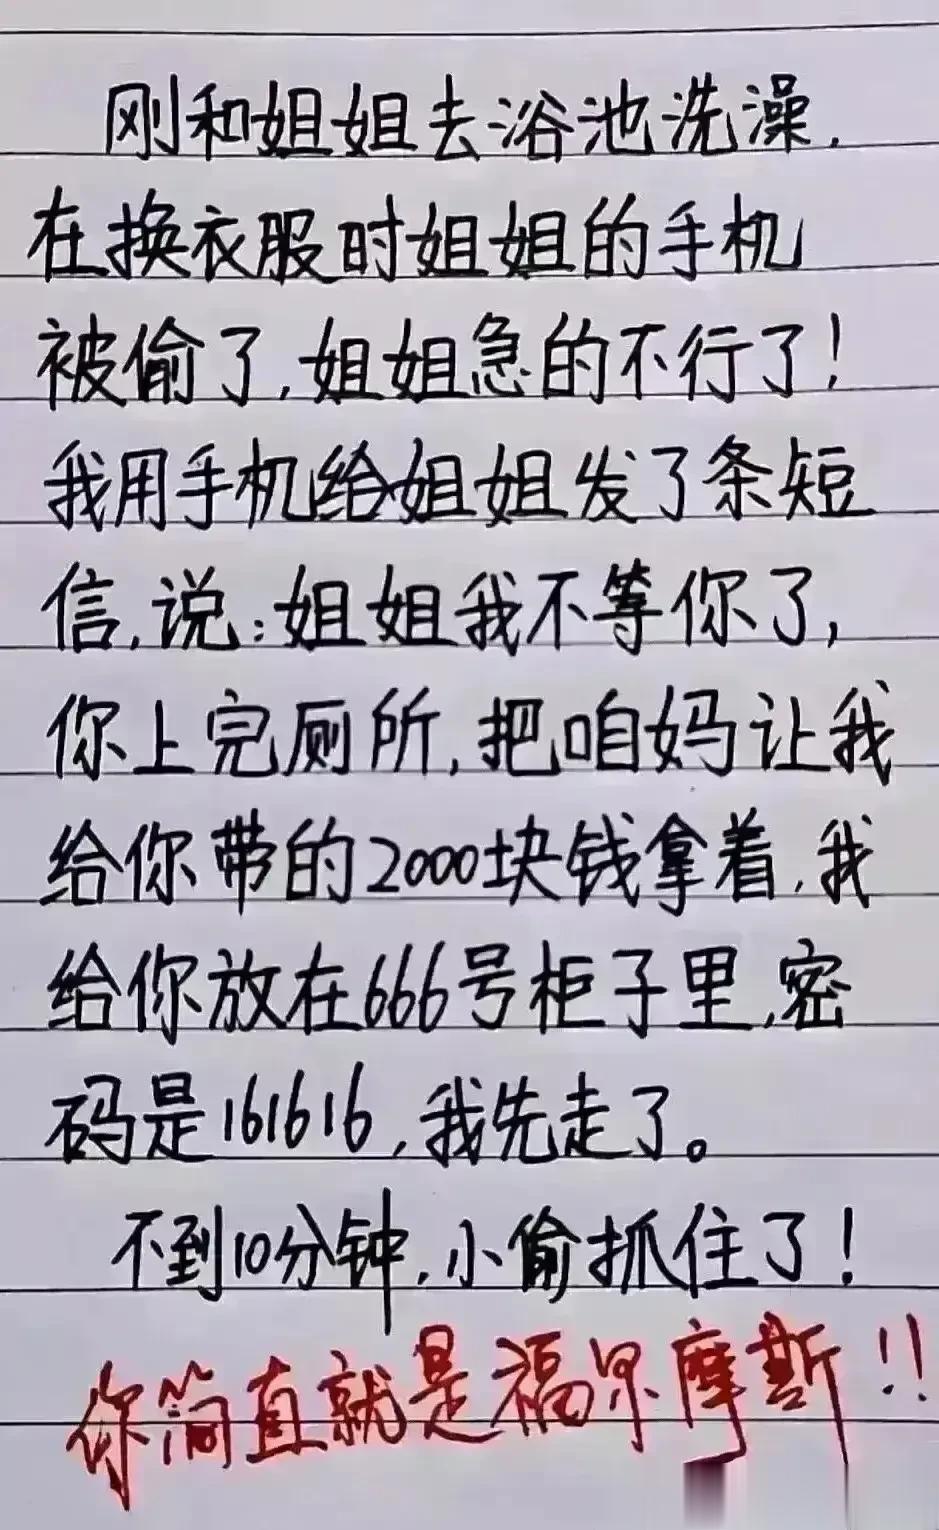 刚和姐姐去浴池洗澡,
在换衣服时姐姐的手机
被偷了,姐姐急的不行了!
我用手机给姐姐发了条短
信,说:姐姐我不等你了,
你上完厕所,把咱妈让我
给你带的2000块钱拿着,我
给你放在666号柜子里,密
码是161616,我先走了。
不到10分钟,小偷抓住了!
你简直就是福尔摩斯!!